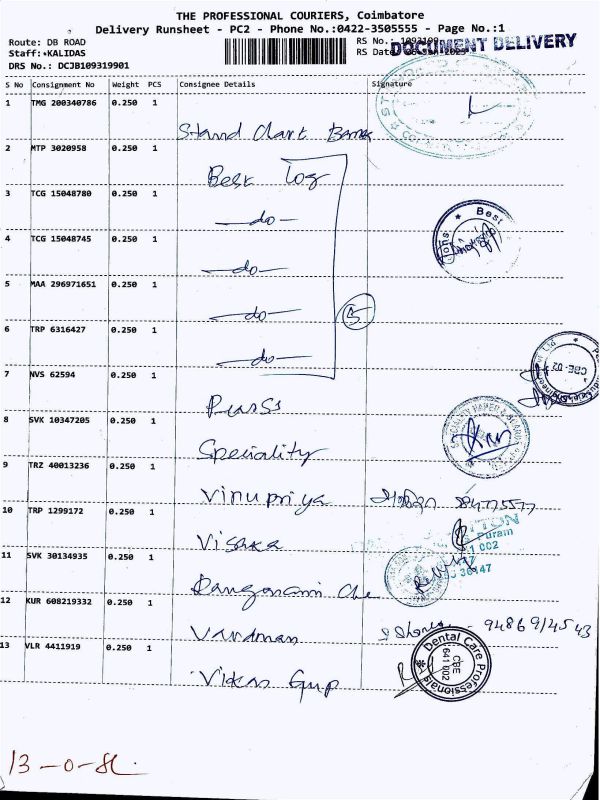 THE PROFESSIONAL COURIERS, Coimbatore
Delivery Runsheet - PC2 - Phone No.:0422-3505555 - Page No.:1
Route: DB ROAD
Staff:*KALIDAS
DRS No.: DCJB109319901
RS No.:
RS Date
DOCUMENT DELIVERY
S No Consignment No Weight PCS Consignee Details Signature
1 TMG 200340786 0.250 1 Stand Chart Bank
2 MTP 3020958 0.250 1 Best log
3 TCG 15048780 0.250 1 —do—
4 TCG 15048745 0.250 1 —do—
5 MAA 296971651 0.250 1 —do—
6 TRP 6316427 0.250 1 —do—
5
7 NVS 62594 0.250 1
8 SVK 10347205 0.250 1 Speciality
9 TRZ 40013236 0.250 1 Vinupriya
10 TRP 1299172 0.250 1 Visaka
11 SVK 30134935 0.250 1 Rangasami Che
12 KUR 608219332 0.250 1 Vardman
13 VLR 4411919 0.250 1 Vikas Grup
Best
CBE-02
Puram
94869 14543
Dental Care Professionals
CBE
641 002
13-0-